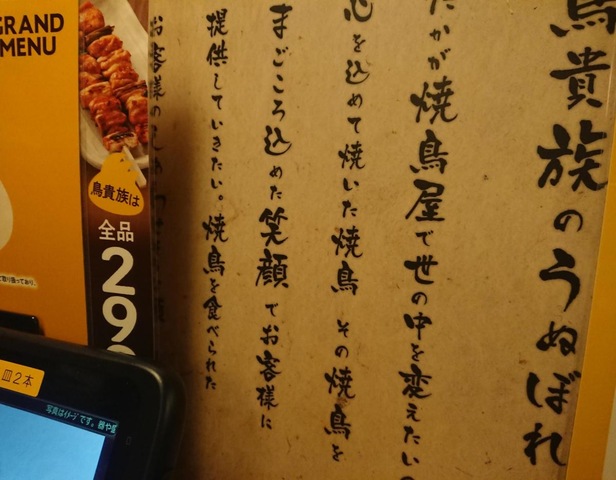 鳥貴族のうぬぼれ
たかが焼鳥屋で世の中を変えたいの
心を込めて焼いた焼鳥 その焼鳥を
まごころ込めた笑顔でお客様に
提供していきたい。焼鳥を食べられた
お客様の
GRAND
MENU
鳥貴族は
全品
29
皿2本
写真はイメージです。器や盛